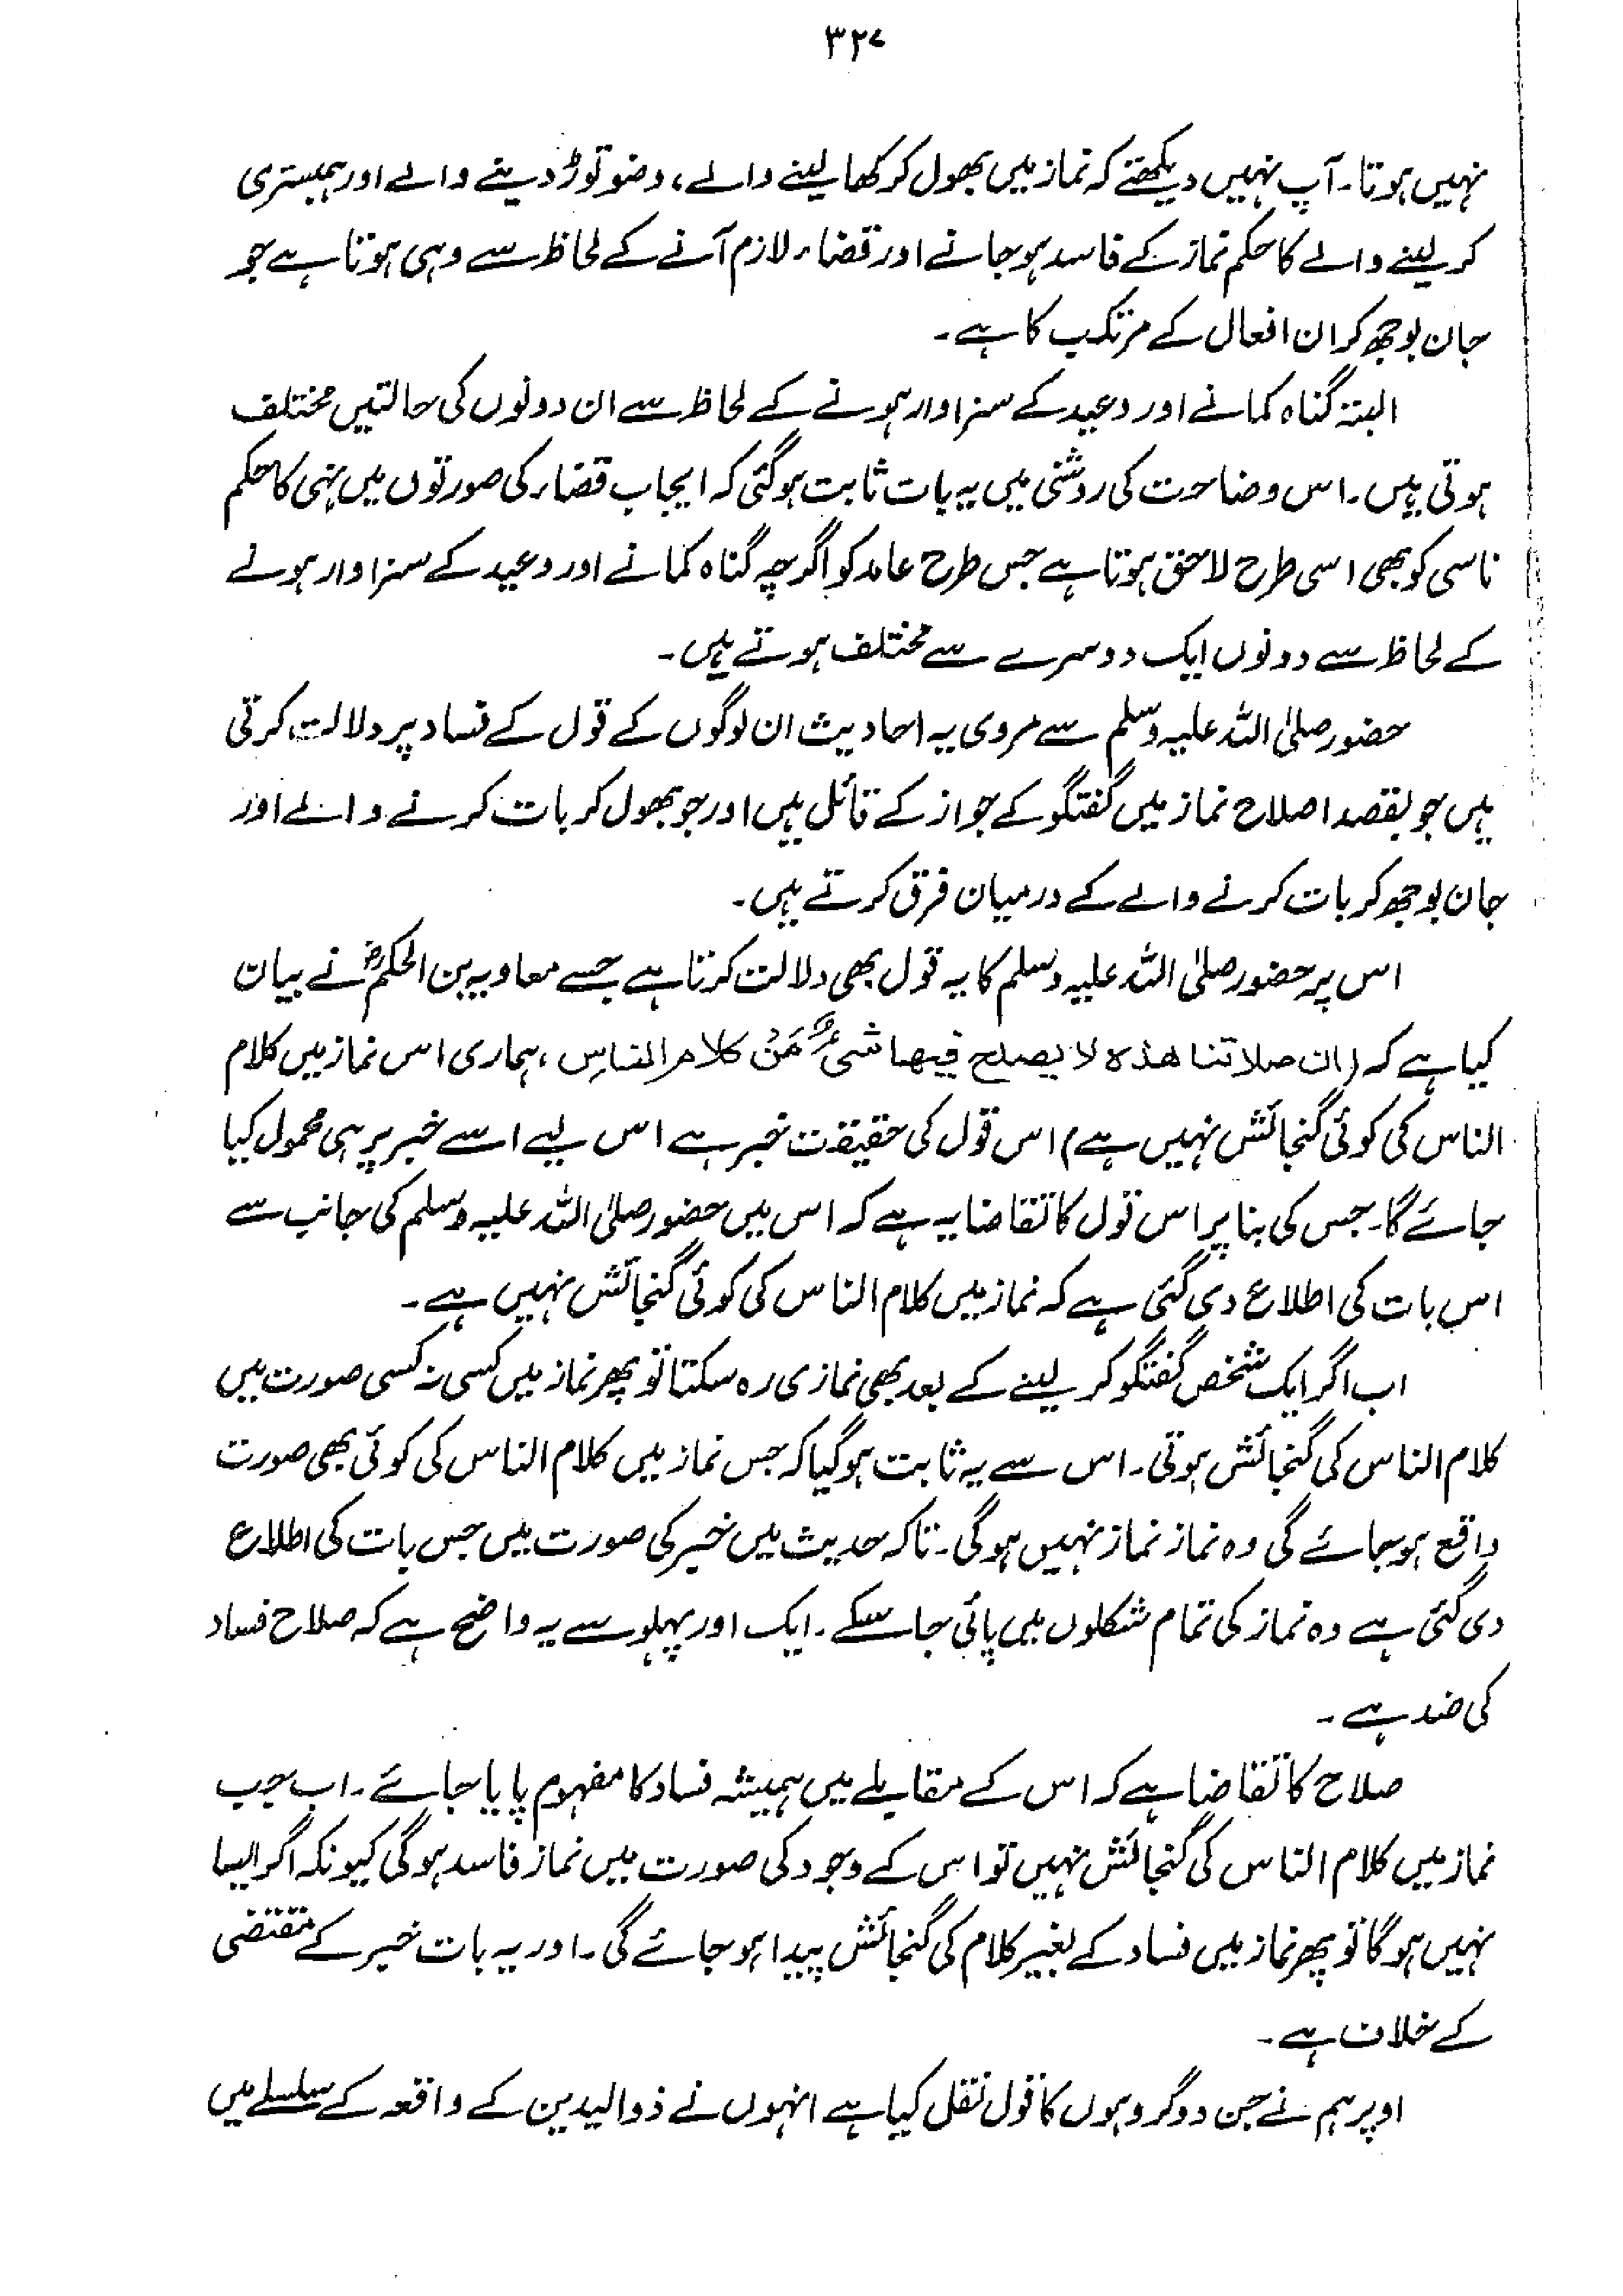 ۳۲۷
نہیں ہوتا۔ آپ نہیں دیکھتے کہ نماز میں بھول کر کھا لینے والے، وضو توڑ دینے والے اور ہمبستری
کر لینے والے کا حکم نماز کے فاسد ہو جانے اور قضاء لازم آنے کے لحاظ سے وہی ہوتا ہے جو
جان بوجھ کر ان افعال کے مرتکب کا ہے۔
البتہ گناہ کمانے اور وعید کے سزاوار ہونے کے لحاظ سے ان دونوں کی حالتیں مختلف
ہوتی ہیں۔ اس وضاحت کی روشنی میں یہ بات ثابت ہو گئی کہ ایجاب قضاء کی صورتوں میں نہی کا حکم
ناسی کو بھی اسی طرح لاحق ہوتا ہے جس طرح عامد کو اگرچہ گناہ کمانے اور وعید کے سزاوار ہونے
کے لحاظ سے دونوں ایک دوسرے سے مختلف ہوتے ہیں۔
حضور صلی اللہ علیہ وسلم سے مروی یہ احادیث ان لوگوں کے قول کے فساد پر دلالت کرتی
ہیں جو بقصد اصلاح نماز میں گفتگو کے جواز کے قائل ہیں اور جو بھول کر بات کرنے والے اور
جان بوجھ کر بات کرنے والے کے درمیان فرق کرتے ہیں۔
اس پر حضور صلی اللہ علیہ وسلم کا یہ قول بھی دلالت کرتا ہے جسے معاویہ بن الحکمؓ نے بیان
کیا ہے کہ (ان صلاتنا هذه لا يصلح فيها شىءٌ مَنْ كلام الناسِ، ہماری اس نماز میں کلام
الناس کی کوئی گنجائش نہیں ہے) اس قول کی حقیقت خبر ہے اس لیے اسے خبر پر ہی محمول کیا
جائے گا۔ جس کی بنا پر اس قول کا تقاضا یہ ہے کہ اس میں حضور صلی اللہ علیہ وسلم کی جانب سے
اس بات کی اطلاع دی گئی ہے کہ نماز میں کلام الناس کی کوئی گنجائش نہیں ہے۔
اب اگر ایک شخص گفتگو کر لینے کے بعد بھی نمازی رہ سکتا تو پھر نماز میں کسی نہ کسی صورت میں
کلام الناس کی گنجائش ہوتی۔ اس سے یہ ثابت ہو گیا کہ جس نماز میں کلام الناس کی کوئی بھی صورت
واقع ہو جائے گی وہ نماز نماز نہیں ہوگی۔ تاکہ حدیث میں خبر کی صورت میں جس بات کی اطلاع
دی گئی ہے وہ نماز کی تمام شکلوں میں پائی جا سکے۔ ایک اور پہلو سے یہ واضح ہے کہ صلاح فساد
کی ضد ہے۔
صلاح کا تقاضا ہے کہ اس کے مقابلے میں ہمیشہ فساد کا مفہوم پایا جائے۔ اب جب
نماز میں کلام الناس کی گنجائش نہیں تو اس کے وجود کی صورت میں نماز فاسد ہوگی کیونکہ اگر ایسا
نہیں ہوگا تو پھر نماز میں فساد کے بغیر کلام کی گنجائش پیدا ہو جائے گی۔ اور یہ بات خبر کے مقتضی
کے خلاف ہے۔
اوپر ہم نے جن دو گروہوں کا قول نقل کیا ہے انہوں نے ذوالیدین کے واقعہ کے سلسلے میں